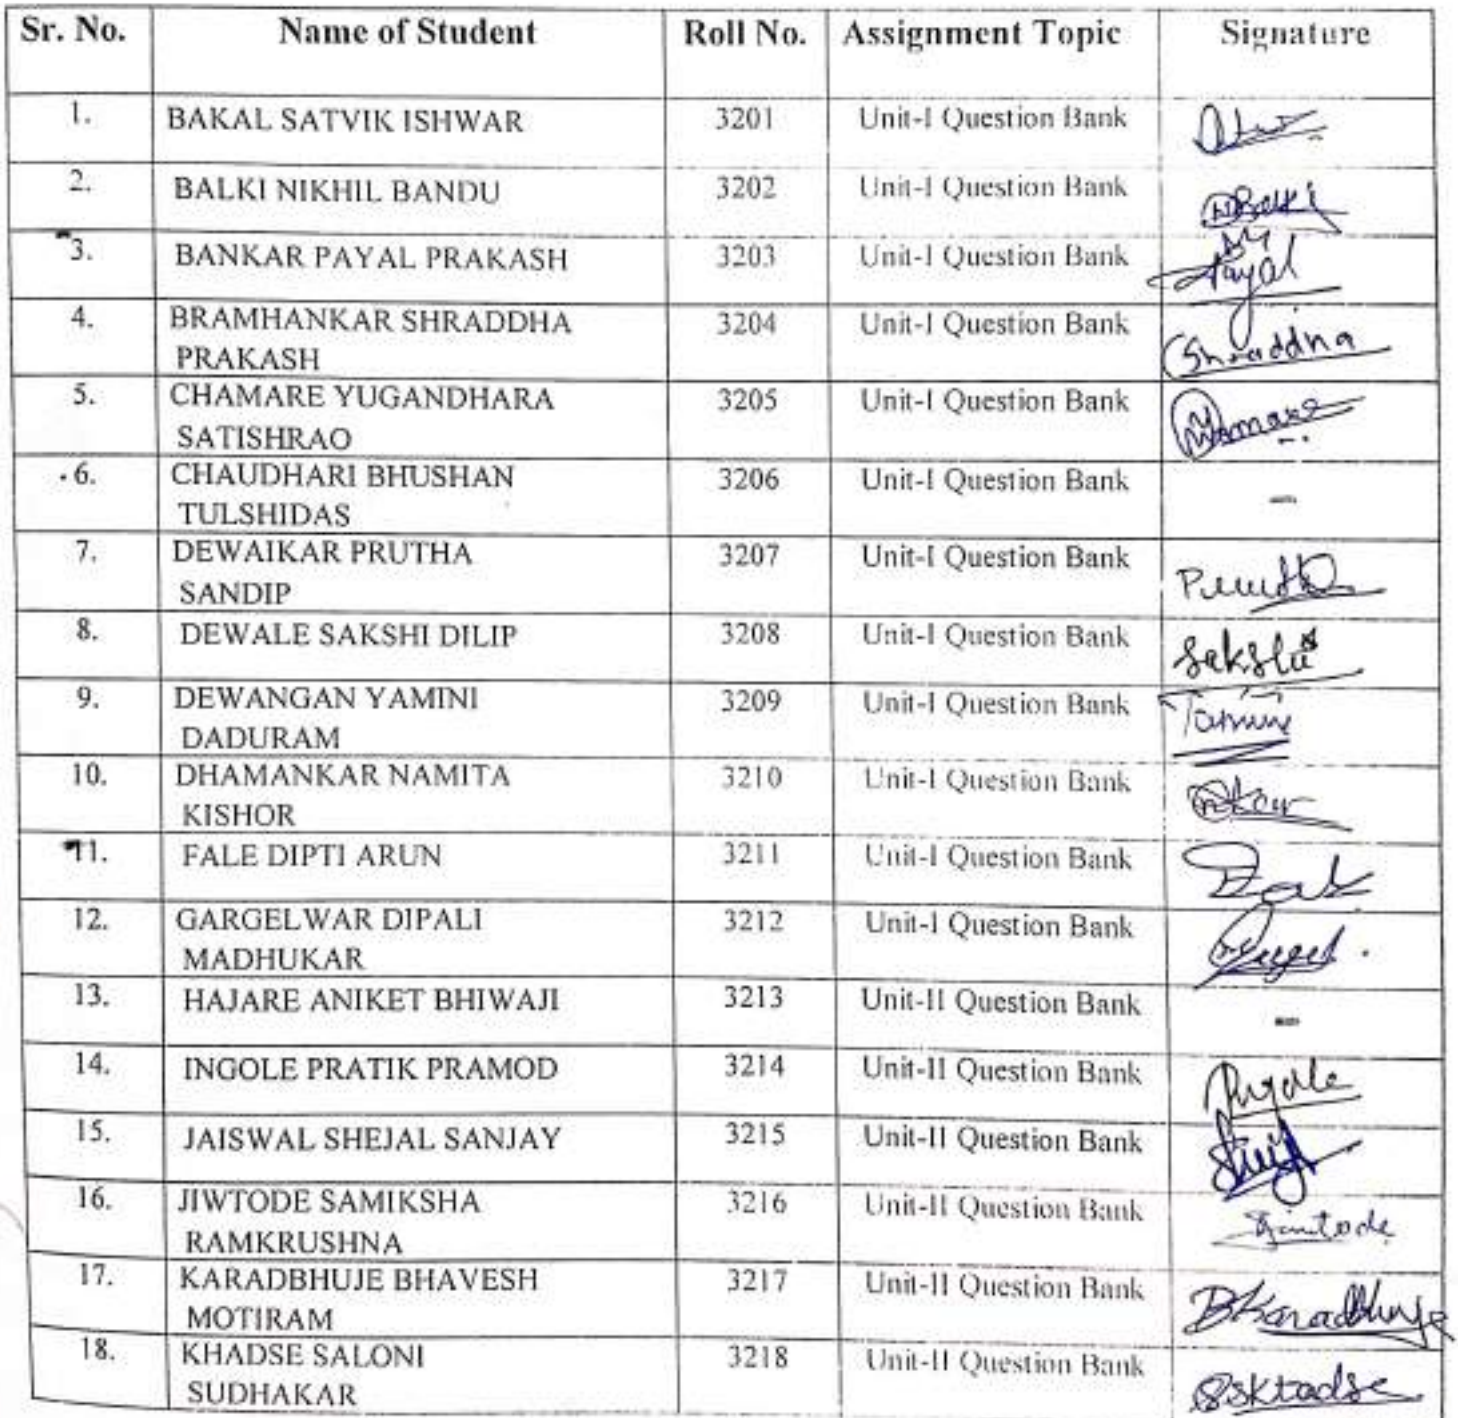 Sr. No. Name of Student Roll No. Assignment Topic Signature
1. BAKAL SATVIK ISHWAR 3201 Unit-I Question Bank
2. BALKI NIKHIL BANDU 3202 Unit-I Question Bank NBalki
3. BANKAR PAYAL PRAKASH 3203 Unit-I Question Bank Payal
4. BRAMHANKAR SHRADDHA 3204 Unit-I Question Bank Shraddha
PRAKASH
5. CHAMARE YUGANDHARA 3205 Unit-I Question Bank
SATISHRAO
6. CHAUDHARI BHUSHAN 3206 Unit-I Question Bank -
TULSHIDAS
7. DEWAIKAR PRUTHA 3207 Unit-I Question Bank Prutha
SANDIP
8. DEWALE SAKSHI DILIP 3208 Unit-I Question Bank Sakshi
9. DEWANGAN YAMINI 3209 Unit-I Question Bank Yamini
DADURAM
10. DHAMANKAR NAMITA 3210 Unit-I Question Bank
KISHOR
11. FALE DIPTI ARUN 3211 Unit-I Question Bank
12. GARGELWAR DIPALI 3212 Unit-I Question Bank
MADHUKAR
13. HAJARE ANIKET BHIWAJI 3213 Unit-II Question Bank -
14. INGOLE PRATIK PRAMOD 3214 Unit-II Question Bank
15. JAISWAL SHEJAL SANJAY 3215 Unit-II Question Bank
16. JIWTODE SAMIKSHA 3216 Unit-II Question Bank
RAMKRUSHNA
17. KARADBHUJE BHAVESH 3217 Unit-II Question Bank BKaradbhuje
MOTIRAM
18. KHADSE SALONI 3218 Unit-II Question Bank
SUDHAKAR